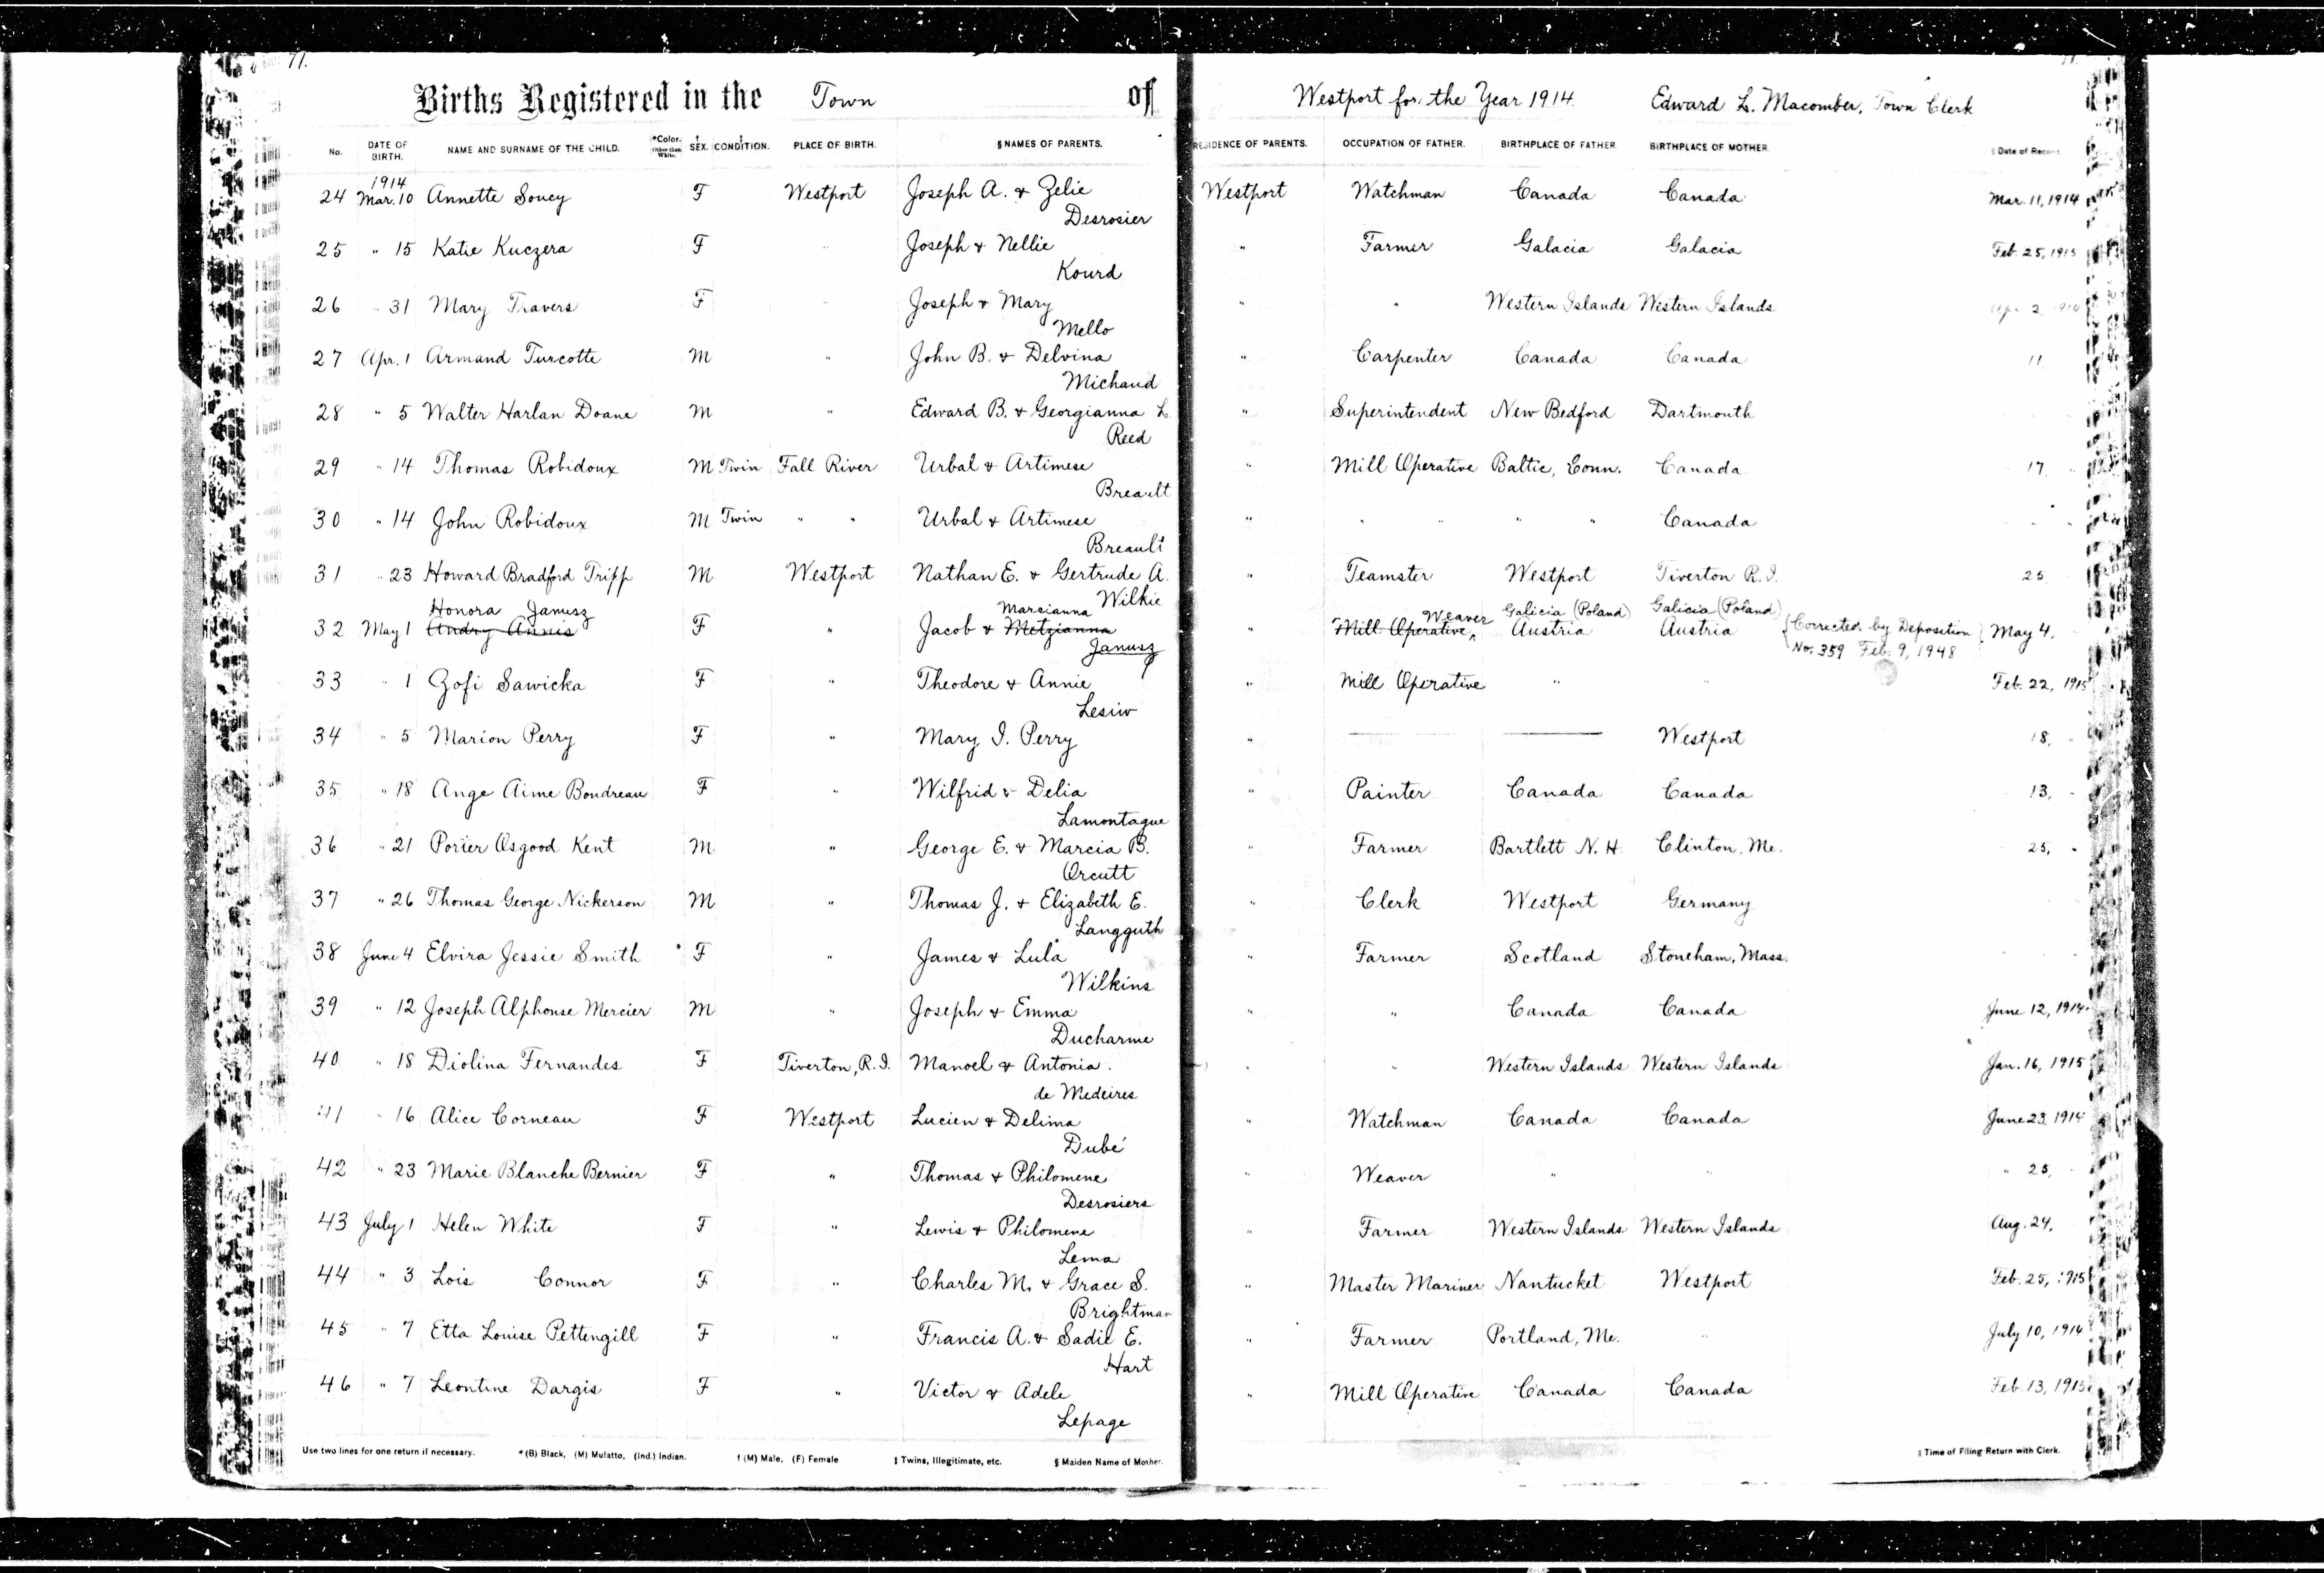 77.
Births Registered in the Town of Westport for the Year 1914. Edward L. Macomber, Town Clerk
No. DATE OF BIRTH. NAME AND SURNAME OF THE CHILD. *Color. Other than White. † SEX. ‡ CONDITION. PLACE OF BIRTH. § NAMES OF PARENTS. RESIDENCE OF PARENTS. OCCUPATION OF FATHER. BIRTHPLACE OF FATHER. BIRTHPLACE OF MOTHER. ‖ Date of Record.
1914
24 Mar. 10 Annette Soucy F Westport Joseph A. & Zelie Westport Watchman Canada Canada Mar. 11, 1914
Desrosier
25 " 15 Katie Kuczera F " Joseph & Nellie " Farmer Galacia Galacia Feb. 25, 1915
Kourd
26 " 31 Mary Travers F " Joseph & Mary " " Western Islands Western Islands Apr. 2, 1914
Mello
27 Apr. 1 Armand Turcotte M " John B. & Delvina " Carpenter Canada Canada 11
Michaud
28 " 5 Walter Harlan Doane M " Edward B. & Georgianna L. " Superintendent New Bedford Dartmouth
Reed
29 " 14 Thomas Robidoux M Twin Fall River Urbal & Artimese " Mill Operative Baltic, Conn. Canada 17
Breault
30 " 14 John Robidoux M Twin " " Urbal & Artimese " " " " " Canada " "
Breault
31 " 23 Howard Bradford Tripp M Westport Nathan E. & Gertrude A. " Teamster Westport Tiverton R.I. 25
Wilkie
Honora Janusz Marcianna Weaver Galicia (Poland) Galicia (Poland)
32 May 1 Andry Annis F " Jacob & Metzianna " Mill Operative Austria Austria Corrected by Deposition May 4.
Janusz No. 359 Feb. 9, 1948
33 " 1 Zofi Sawicka F " Theodore & Annie " Mill Operative " " Feb. 22, 1915
Lesiw
34 " 5 Marion Perry F " Mary I. Perry " Westport 18, "
35 " 18 Ange Aime Boudreau F " Wilfrid & Delia " Painter Canada Canada 13, "
Lamontague
36 " 21 Porter Osgood Kent M " George E. & Marcia B. " Farmer Bartlett N.H. Clinton, Me. 25, "
Orcutt
37 " 26 Thomas George Nickerson M " Thomas J. & Elizabeth E. " Clerk Westport Germany
Langguth
38 June 4 Elvira Jessie Smith F " James & Lula " Farmer Scotland Stoneham, Mass.
Wilkins
39 " 12 Joseph Alphonse Mercier M " Joseph & Emma " " Canada Canada June 12, 1914.
Ducharme
40 " 18 Diolina Fernandes F Tiverton, R.I. Manoel & Antonia " " Western Islands Western Islands Jan. 16, 1915
de Medeires
41 " 16 Alice Corneau F Westport Lucien & Delima " Watchman Canada Canada June 23, 1914
Dubé
42 " 23 Marie Blanche Bernier F " Thomas & Philomene " Weaver " " " 25,
Desrosiers
43 July 1 Helen White F " Lewis & Philomena " Farmer Western Islands Western Islands Aug. 24,
Lema
44 " 3 Lois Connor F " Charles M. & Grace S. " Master Mariner Nantucket Westport Feb. 25, 1915
Brightman
45 " 7 Etta Louise Pettengill F " Francis A. & Sadie E. " Farmer Portland, Me. " July 10, 1914
Hart
46 " 7 Leontine Dargis F " Victor & Adele " Mill Operative Canada Canada Feb. 13, 1915
Lepage
Use two lines for one return if necessary. * (B) Black, (M) Mulatto, (Ind.) Indian. † (M) Male, (F) Female ‡ Twins, Illegitimate, etc. § Maiden Name of Mother. ‖ Time of Filing Return with Clerk.